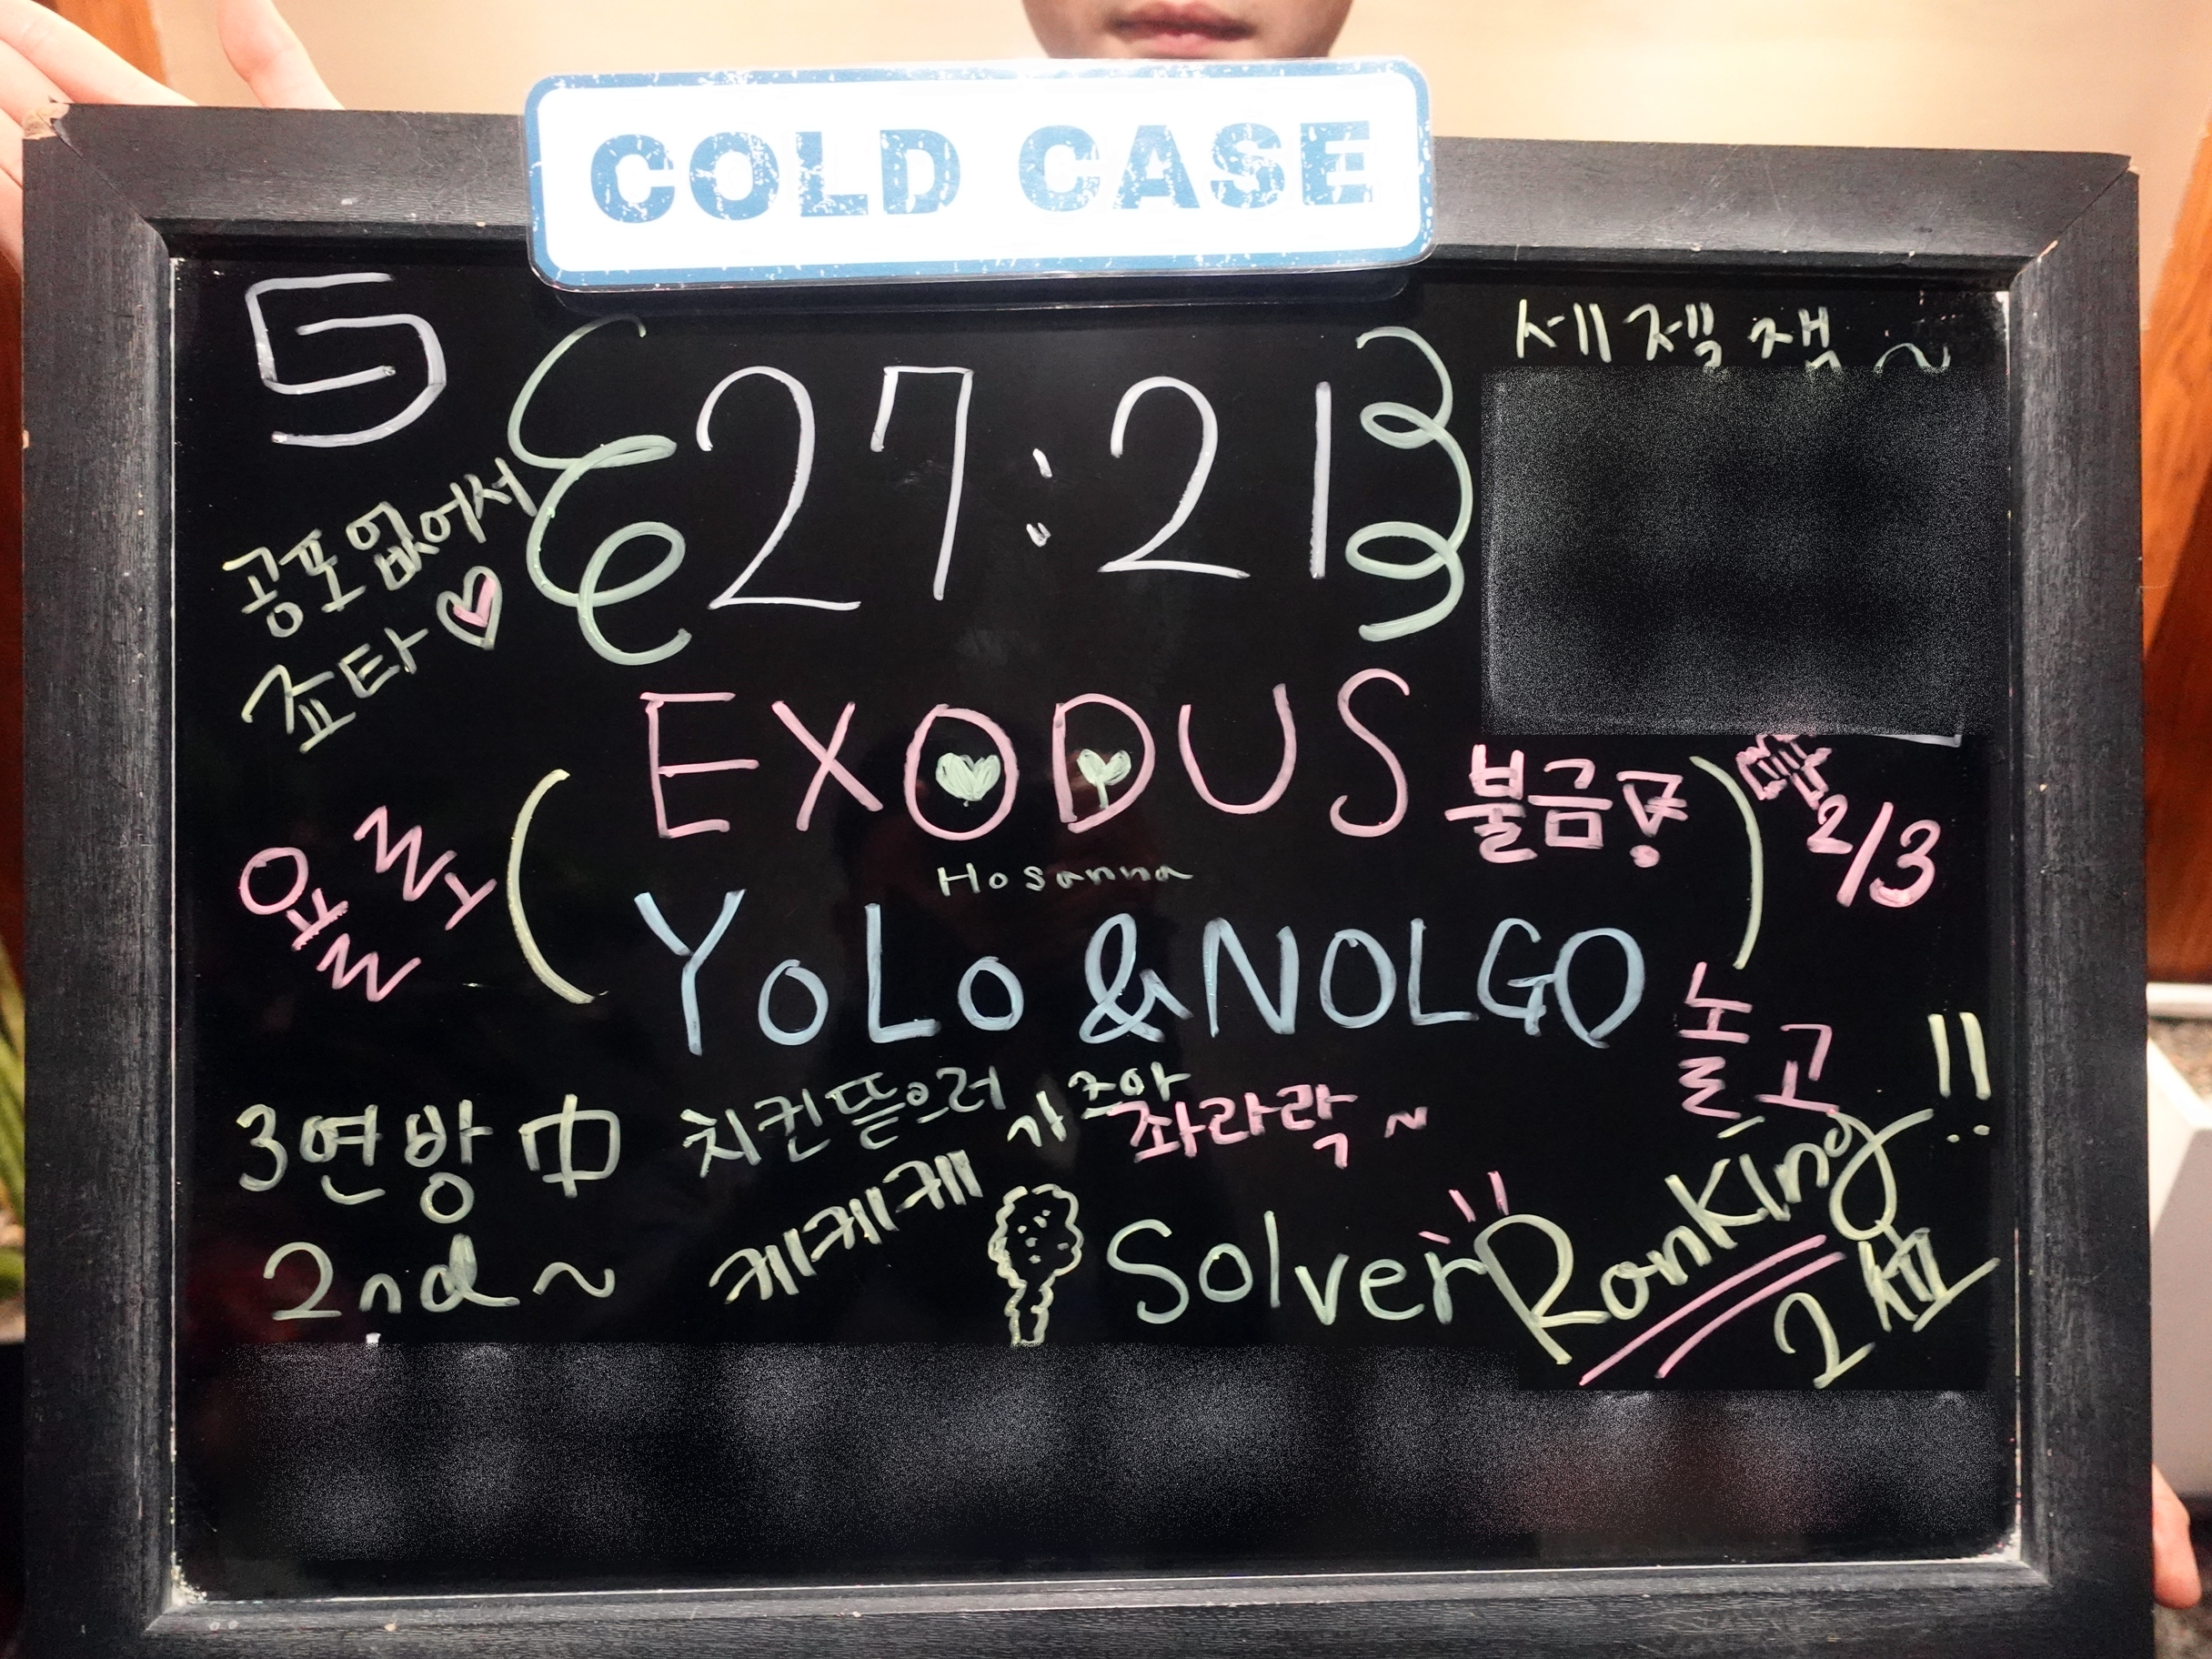 COLD CASE
5
27:21
세젤잼~
공포 없어서
죠타
EXODUS
불금
2/3
Hosanna
욜로
YoLo & NOLGO
놀고
3연방 中
치킨뜯으러 가즈아
촤라락~
2nd~
케케케
Solver
Ranking!!